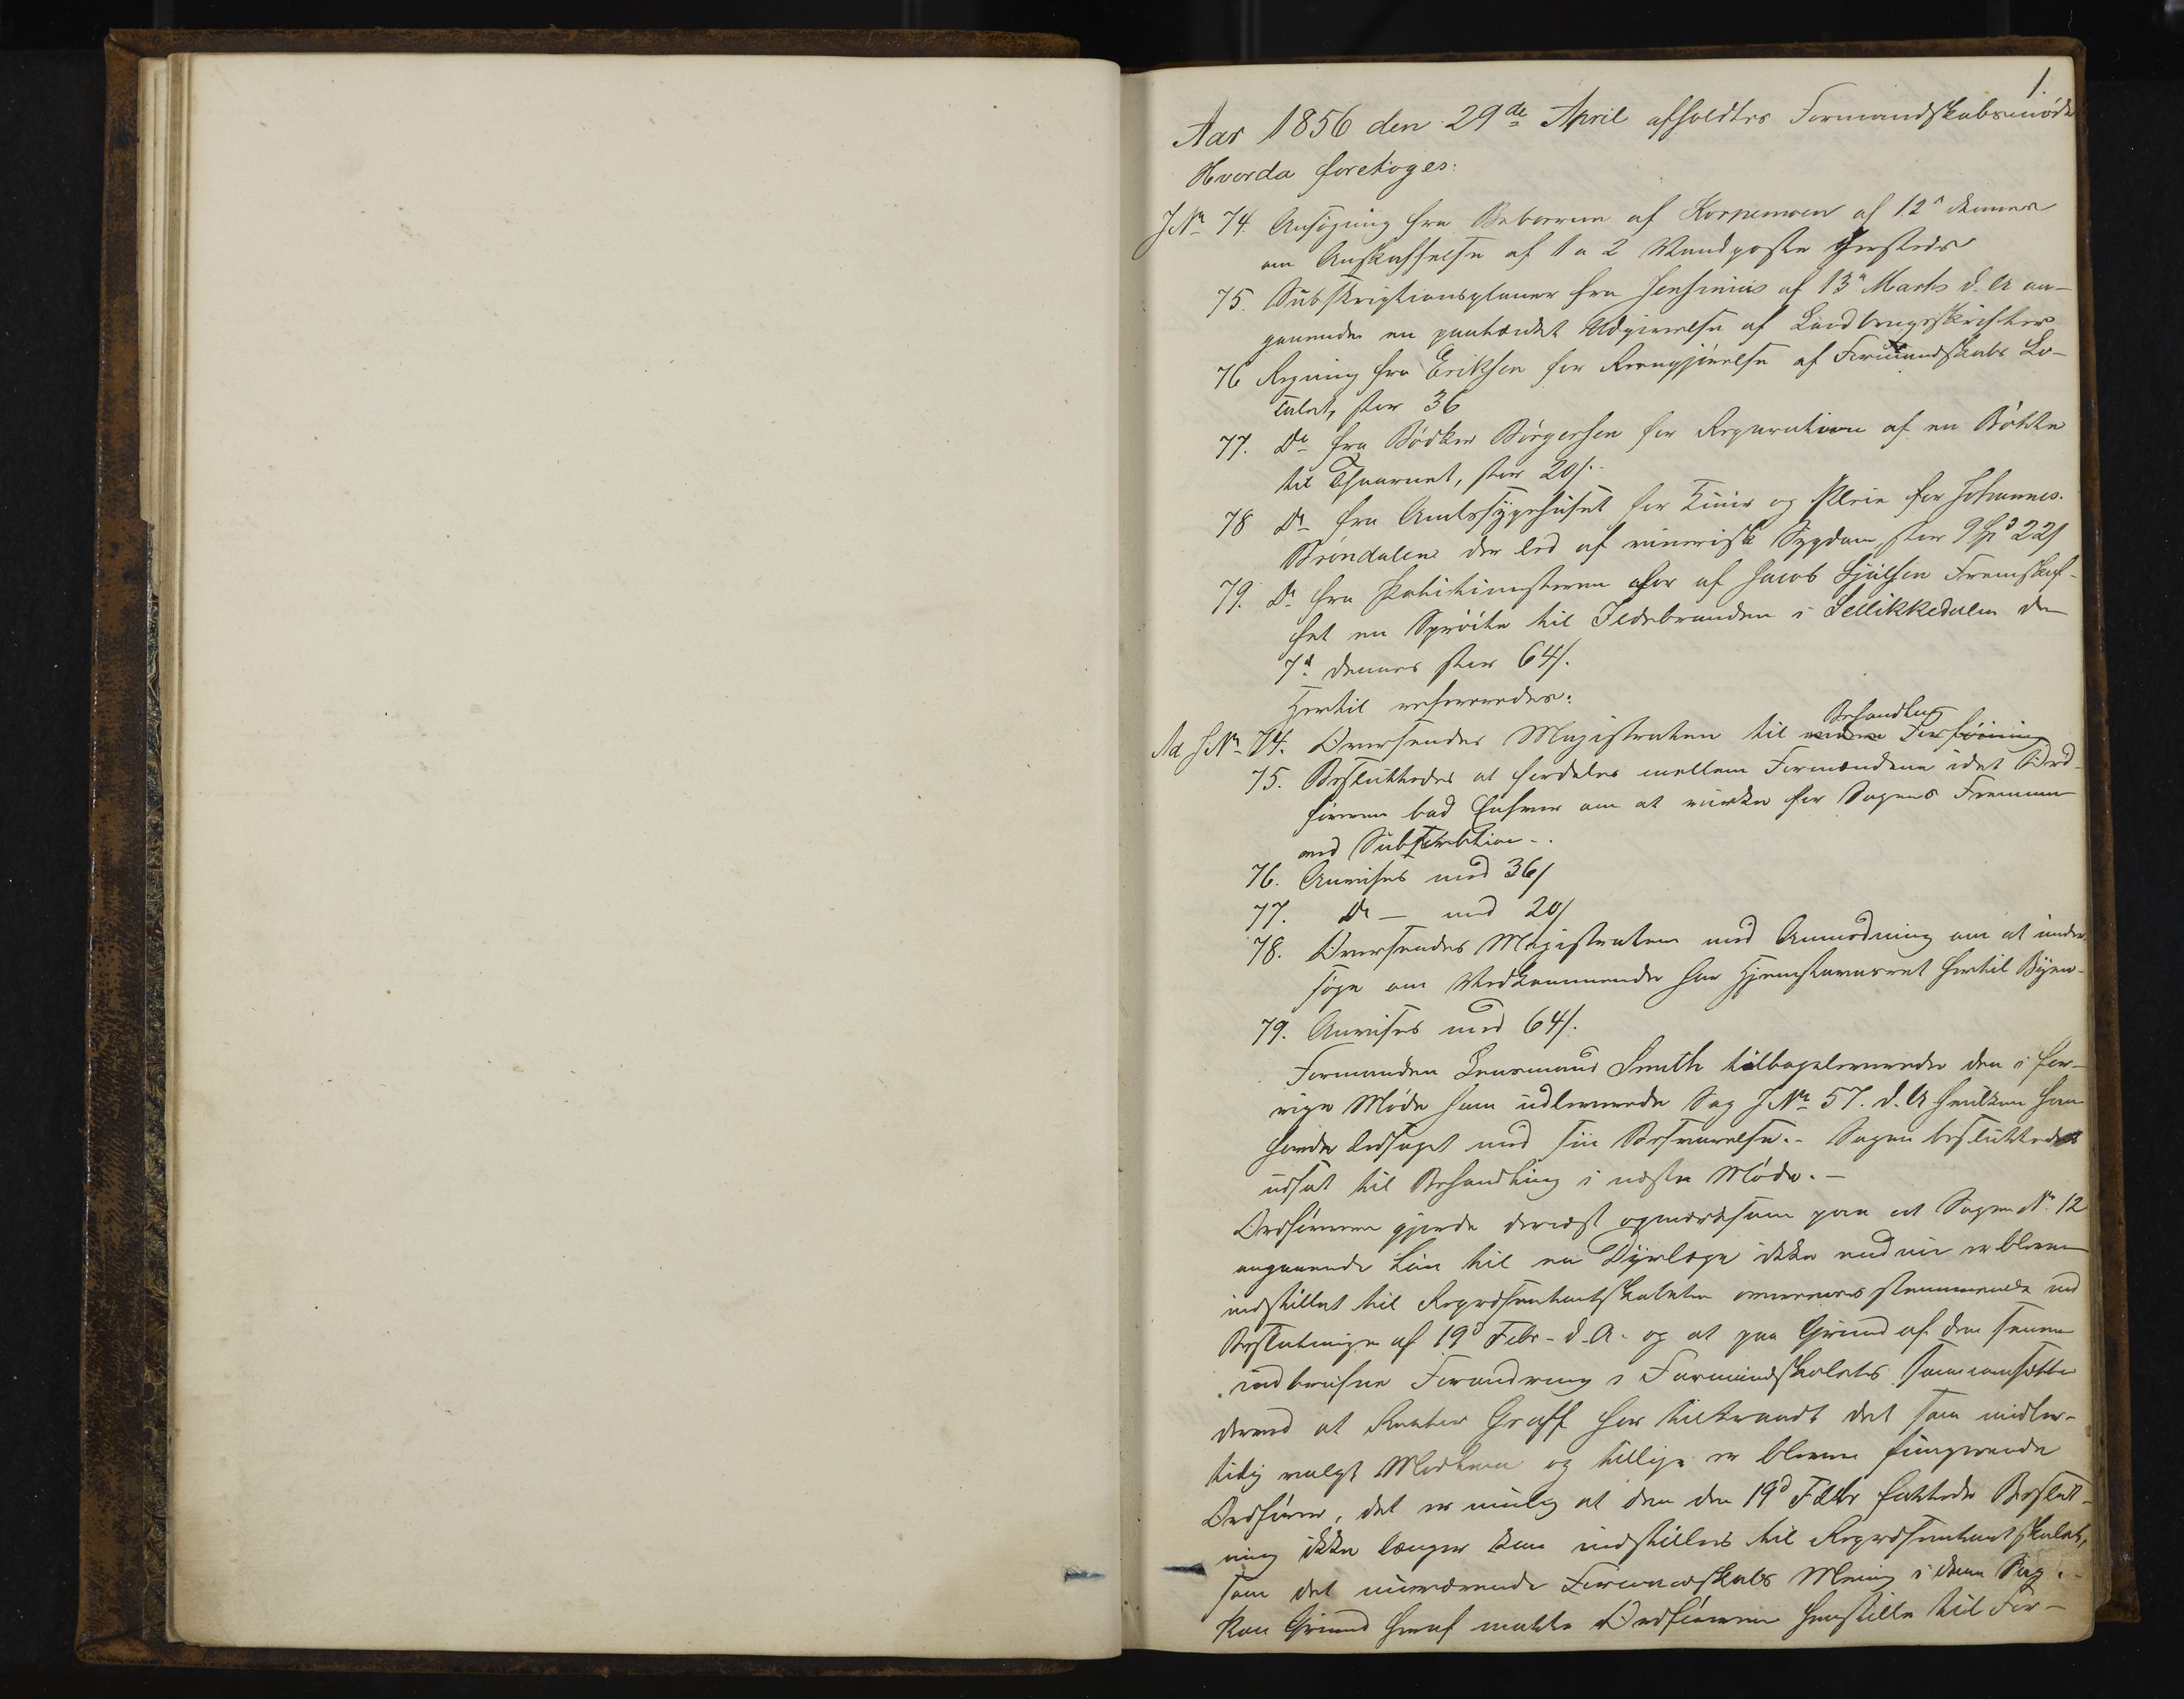 1.
Aar 1856 den 29de April afholdtes Formandskabsmøde
Hvorda foretoges:
J.No 74. Ansøgning fra Beboerne af Korpemoen af 12te dennes
om Anskaffelse af 1 a 2 Vandposte hersteds
75. Subskriptionsplaner fra Jensenius af 13de Marts d. A an-
gaaende en paatænkt Udgivelse af Landbrugsskrifter
76 Regning fra Eriksen for Rengjørelse af Formandskabs Lo-
calet, stor 36
77. Do fra Bødker Børgersen for Reparation af en Bøtte
til Taarnet, stor 20/..
78 Do fra Amtssygehuset for Kuur og Pleie for Johannes
Brøndalen der led af venerisk Sygdom, stor 9 Spd 22/
79. Do fra Politimesteren for af Jacob Hjulsen Fremskaf-
fet en Sprøite til Ildebranden i Sellikkedalen den
7de dennes stor 64/.
Hertil refereredes:
Behandling
Ad J.No 74. Oversendes Magistraten til videre Forføining
75. Besluttedes at fordeles mellem Formændene idet Ord-
føreren bad Enhver om at virke for Sagens Fremme
ved Subskribtion..
76. Anvises med 36/
77. Do — med 20/
78. Oversendes Magistraten med Anmodning om at under-
søge om Vedkommende har Hjemstavnsret hertil Byen.
79. Anvises med 64/.
Formanden Lensmand Smith tilbageleverede den i for-
rige Møde ham udleverede Sag J No 57. d. A hvilken han
havde ledsaget med sin Besvarelse.- Sagen besluttedes
udsat til Behandling i næste Møde.-
Ordføreren gjorde dernæst opmærksom paa at Sagen No 12
angaaende Løn til en Dyrlæge ikke endnu er bleven
indstillet til Repræsentantskabet overensstemmende med
Beslutningen af 19de Febr. d. A. og at paa Grund af den senere
indtrufne Forandring i Formandskabets Sammensætte
derved at Kantor Graff har tiltraadt det som midler-
tidig valgt Medlem og tillige er bleven fungerende
Ordfører, det er muligt at den den 19de Febr fattede Beslut-
ning ikke længer kan indstilles til Repræsentantskabet,
som det nuværende Formandskabs Mening i denne Sag.-
Paa Grund heraf maatte Ordføreren henstille til For-